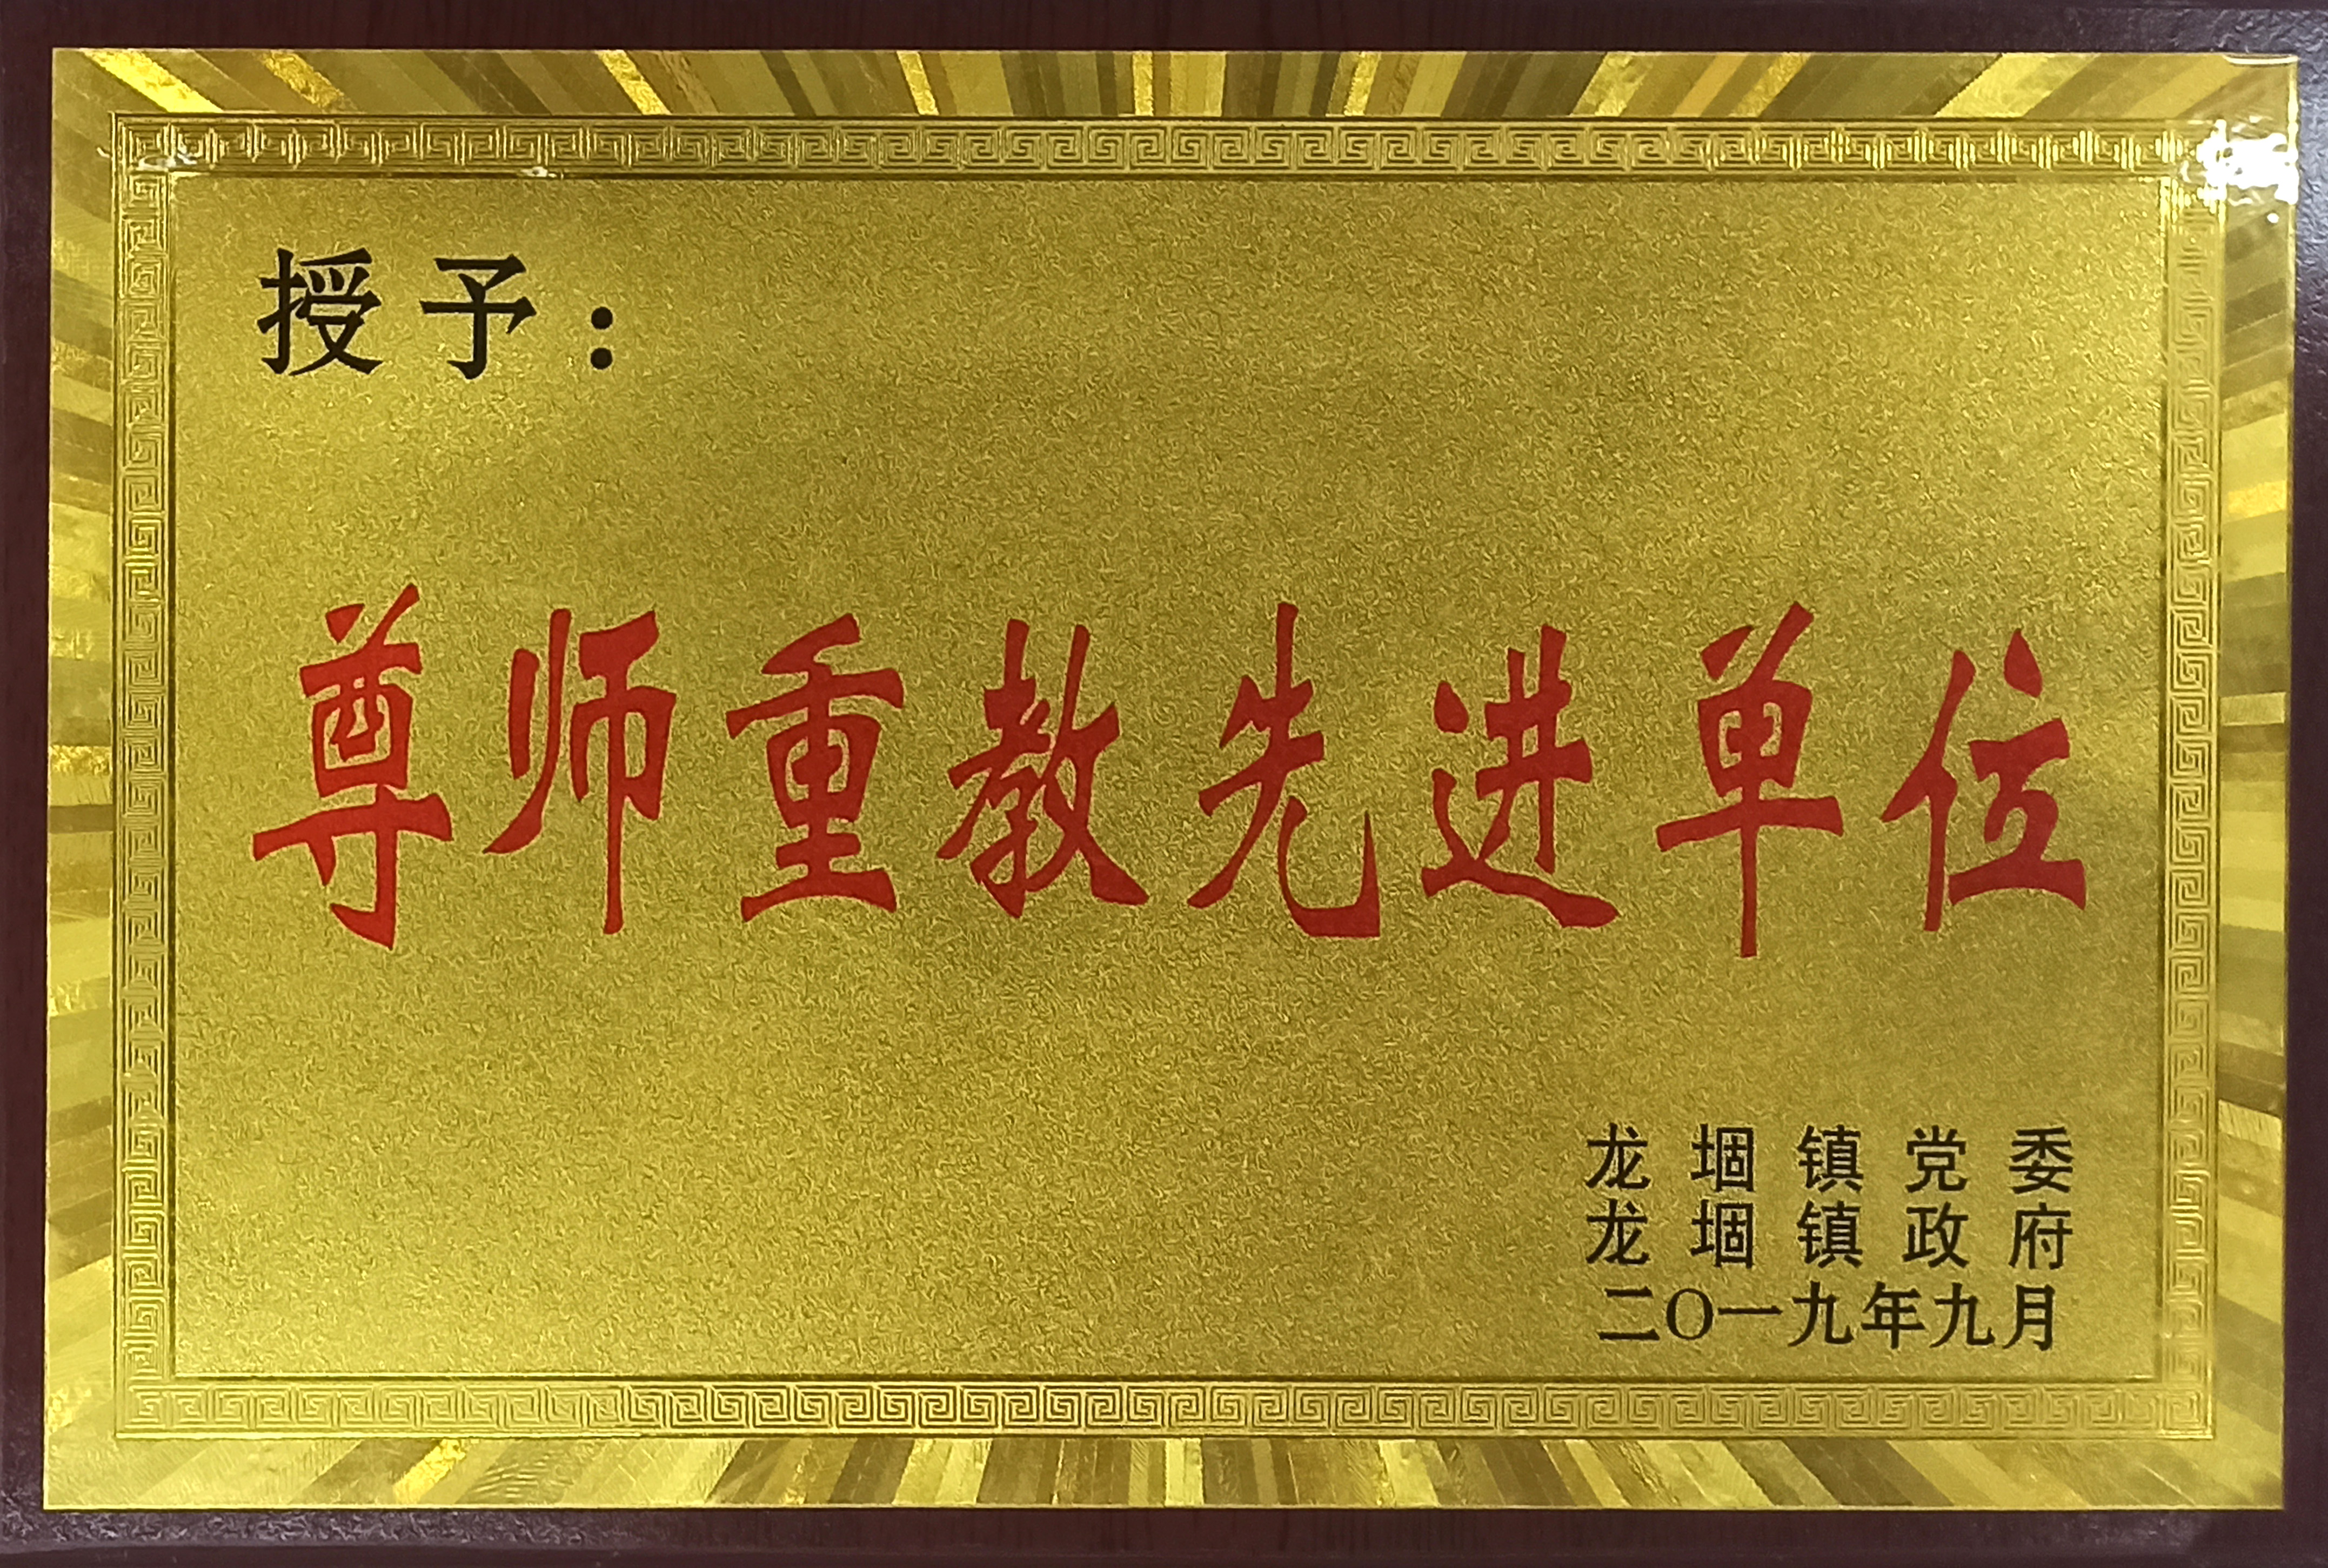 授予：
尊师重教先进单位
龙堌镇党委
龙堌镇政府
二〇一九年九月